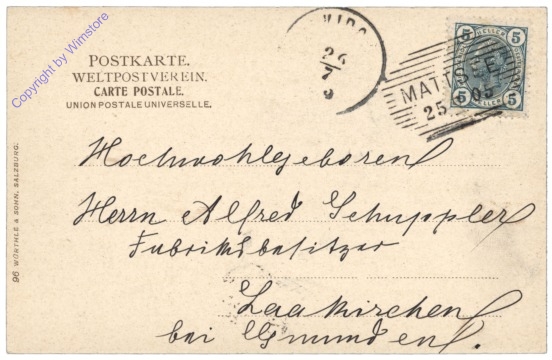 Copyright by Wimstore
POSTKARTE.
WELTPOSTVEREIN.
CARTE POSTALE.
UNION POSTALE UNIVERSELLE.
26
7
5 HELLER 5
MATTSEE
25.
05
5 HELLER 5
Hochwohlgeboren
Herrn Alfred Schuppler
Fabriksbesitzer
Laakirchen
bei Gmunden.
96 WÜRTHLE & SOHN, SALZBURG.